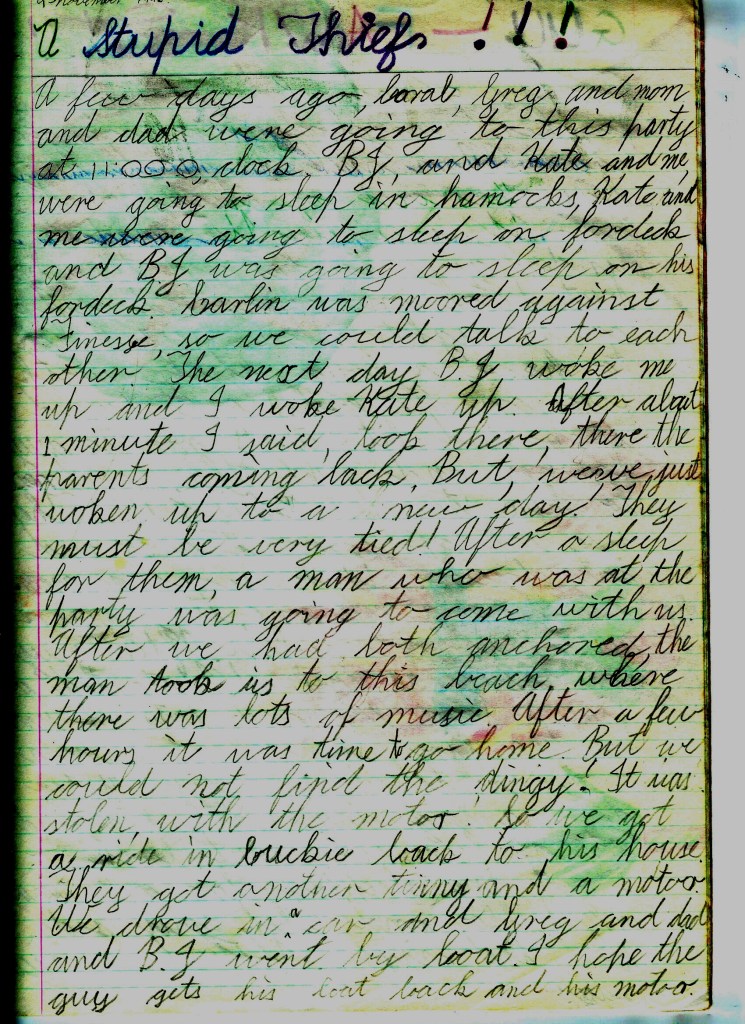 November
A Stupid Thief. !!!
A few days ago, Coral, Greg, and mom
and dad were going to this party
at 11:00 O, clock. B.J, and Kate and me,
were going to sleep in hamocks, Kate and
me were going to sleep on fordeck
and B.J was going to sleep on his
fordeck. Carlin was moored against
Finesse, so we could talk to each
other. The next day B.J woke me
up and I woke Kate up. After about
1 minute I said, look there, there the
parents coming back. But, we've just
woken up to a new day! They
must be very tied! After a sleep
for them, a man who was at the
party was going to come with us.
After we had both anchored, the
man took us to this beach, where
there was lots of music. After a few
hours it was time to go home. But we
could not find the dingy! It was
stolen, with the motor! So we got
a ride in buckie back to his house.
They got another tinny and a motor.
We drove in a car and Greg and dad
and B.J went by boat. I hope the
guy gets his boat back and his motor.